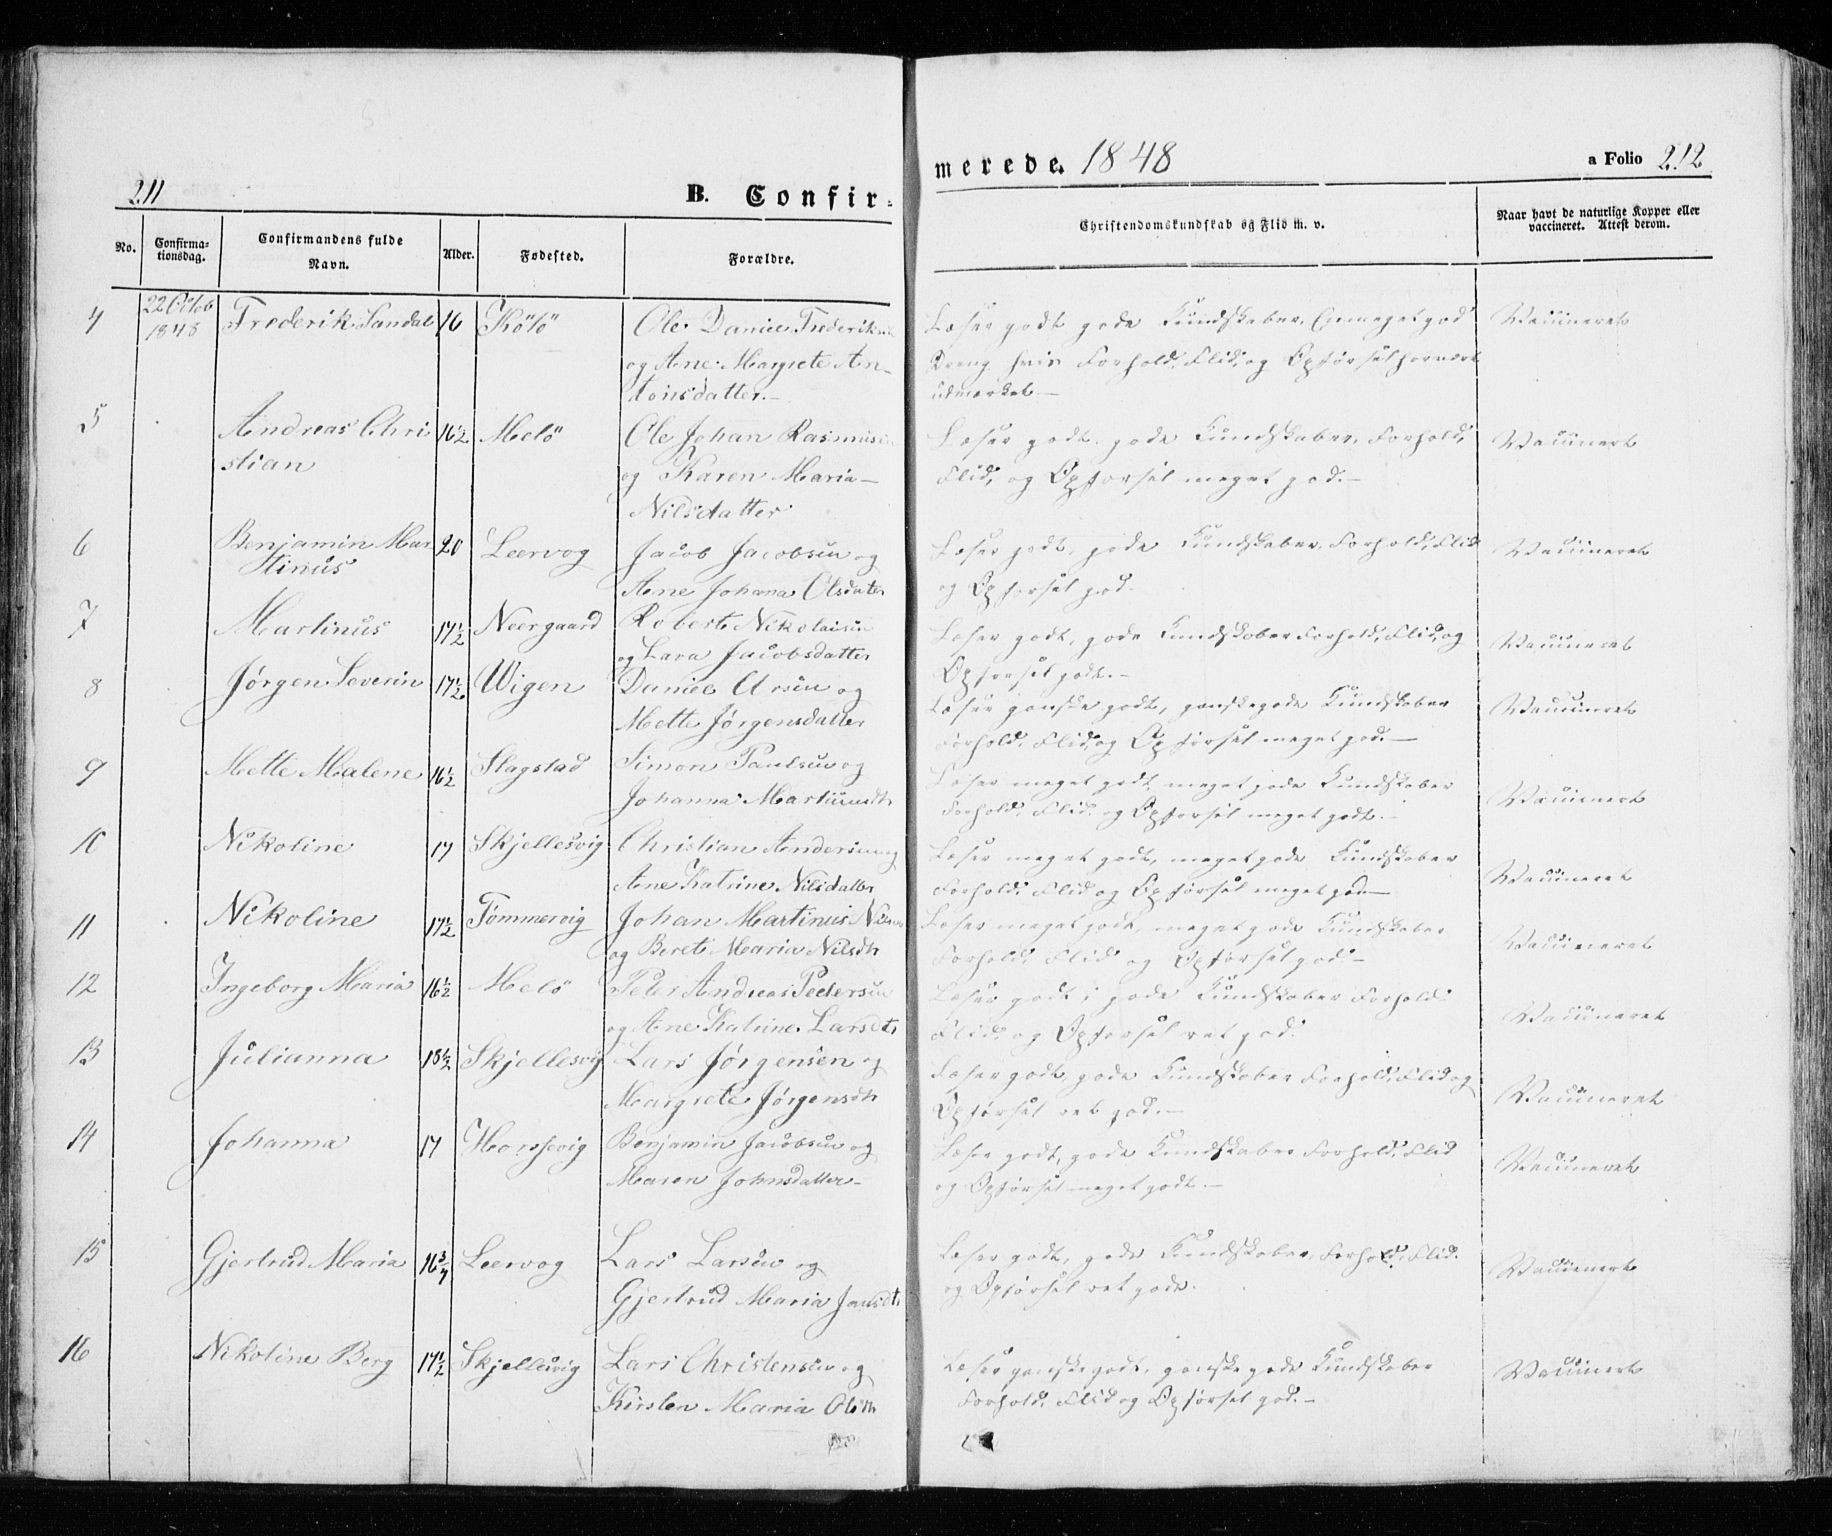 211
B. Confir-
merede. 1848
a Folio 212
No.
Confirma-
tionsdag.
Confirmandens fulde
Navn.
Alder.
Fødested.
Forældre.
Christendomskundskab og Flid m. v.
Naar havt de naturlige Kopper eller
vaccineret. Attest derom.
4 22 Octob Frederik Sandal 16 Ole Daniel Frederiks Læser godt gode Kundskaber, En meget god Vaccineret
1848
og Ane Margrete An- Dreng hvis Forhold, Flid, og Opførsel har været
tonsdatter.- udmærket.-
5 Andreas Chri 16½ Melö Ole Johan Rasmus Læser godt, gode Kundskaber, Forhold, Vaccinert
stian og Karen Maria- Flid, og Opførsel meget god.-
Nilsdatter
6 Benjamin Mar 20 Leervog Jacob Jacobsen og Læser godt, gode Kundskaber, Forhold, Flid Vaccineret
tinus Ane Johana Olsdater og Opførsel god.
7 Martinus 17½ Neergaard Robert Nikolaisen Læser godt, gode Kundskaber Forhold, Flid, og Vaccineret
og Lara Jacobsdatter Opførsel godt.-
8 Jørgen Severin 17½ Wigen Daniel Arsen og Læser ganske godt, ganske gode Kundskaber Vaccineret
Mette Jørgensdatter Forhold, Flid, og Opførsel meget god.-
9 Mette Malene 16½ Slagstad Simon Paulsen og Læser meget godt, meget gode Kundskaber Vaccinert
Johanna Forhold, Flid og Opførsel meget godt.-
10 Nikoline 17 Skjellesvig Christian Andersen og Læser meget godt, meget gode Kundskaber Vaccineret
Ane Katrine Nilsdatter Forhold, Flid og Opførsel meget god-
11 Nikoline 17½ Tømmervig Johan Martinus Læser meget godt, meget gode Kundskaber Vaccineret
og Beret Maria Nilsdtr Forhold, Flid og Opførsel god.-
12 Ingeborg Maria 16½ Melö Peter Andreas Pedersen Læser godt, gode Kundskaber Forhold Vaccineret
og Ane Katrine Larsdtr Flid og Opførsel ret god.
13 Julianna 18½ Skjellesvig Lars Jørgensen og Læser godt, gode Kundskaber Forhold, Flid og Vaccineret
Margrete Jørgensdtr Opførsel ret god.-
14 Johanna 17 Benjamin Jacobsen og Læser godt, gode Kundskaber Forhold, Flid Vaccineret
Maren Johnsdatter- og Opførsel meget godt.-
15 Gjertrud Maria 16¾ Leervog Lars Larsen og Læser godt, gode Kundskaber, Forhold, Flid. Vaccinert
Gjertrud Maria og Opførsel ret gode.
16 Nikoline Berg 17½ Skjellesvig Lars Christensen og Læser ganske godt, ganske gode Kundskaber Vaccinert
Kirsten Maria Olsdtr Forhold, Flid og Opførsel god.-